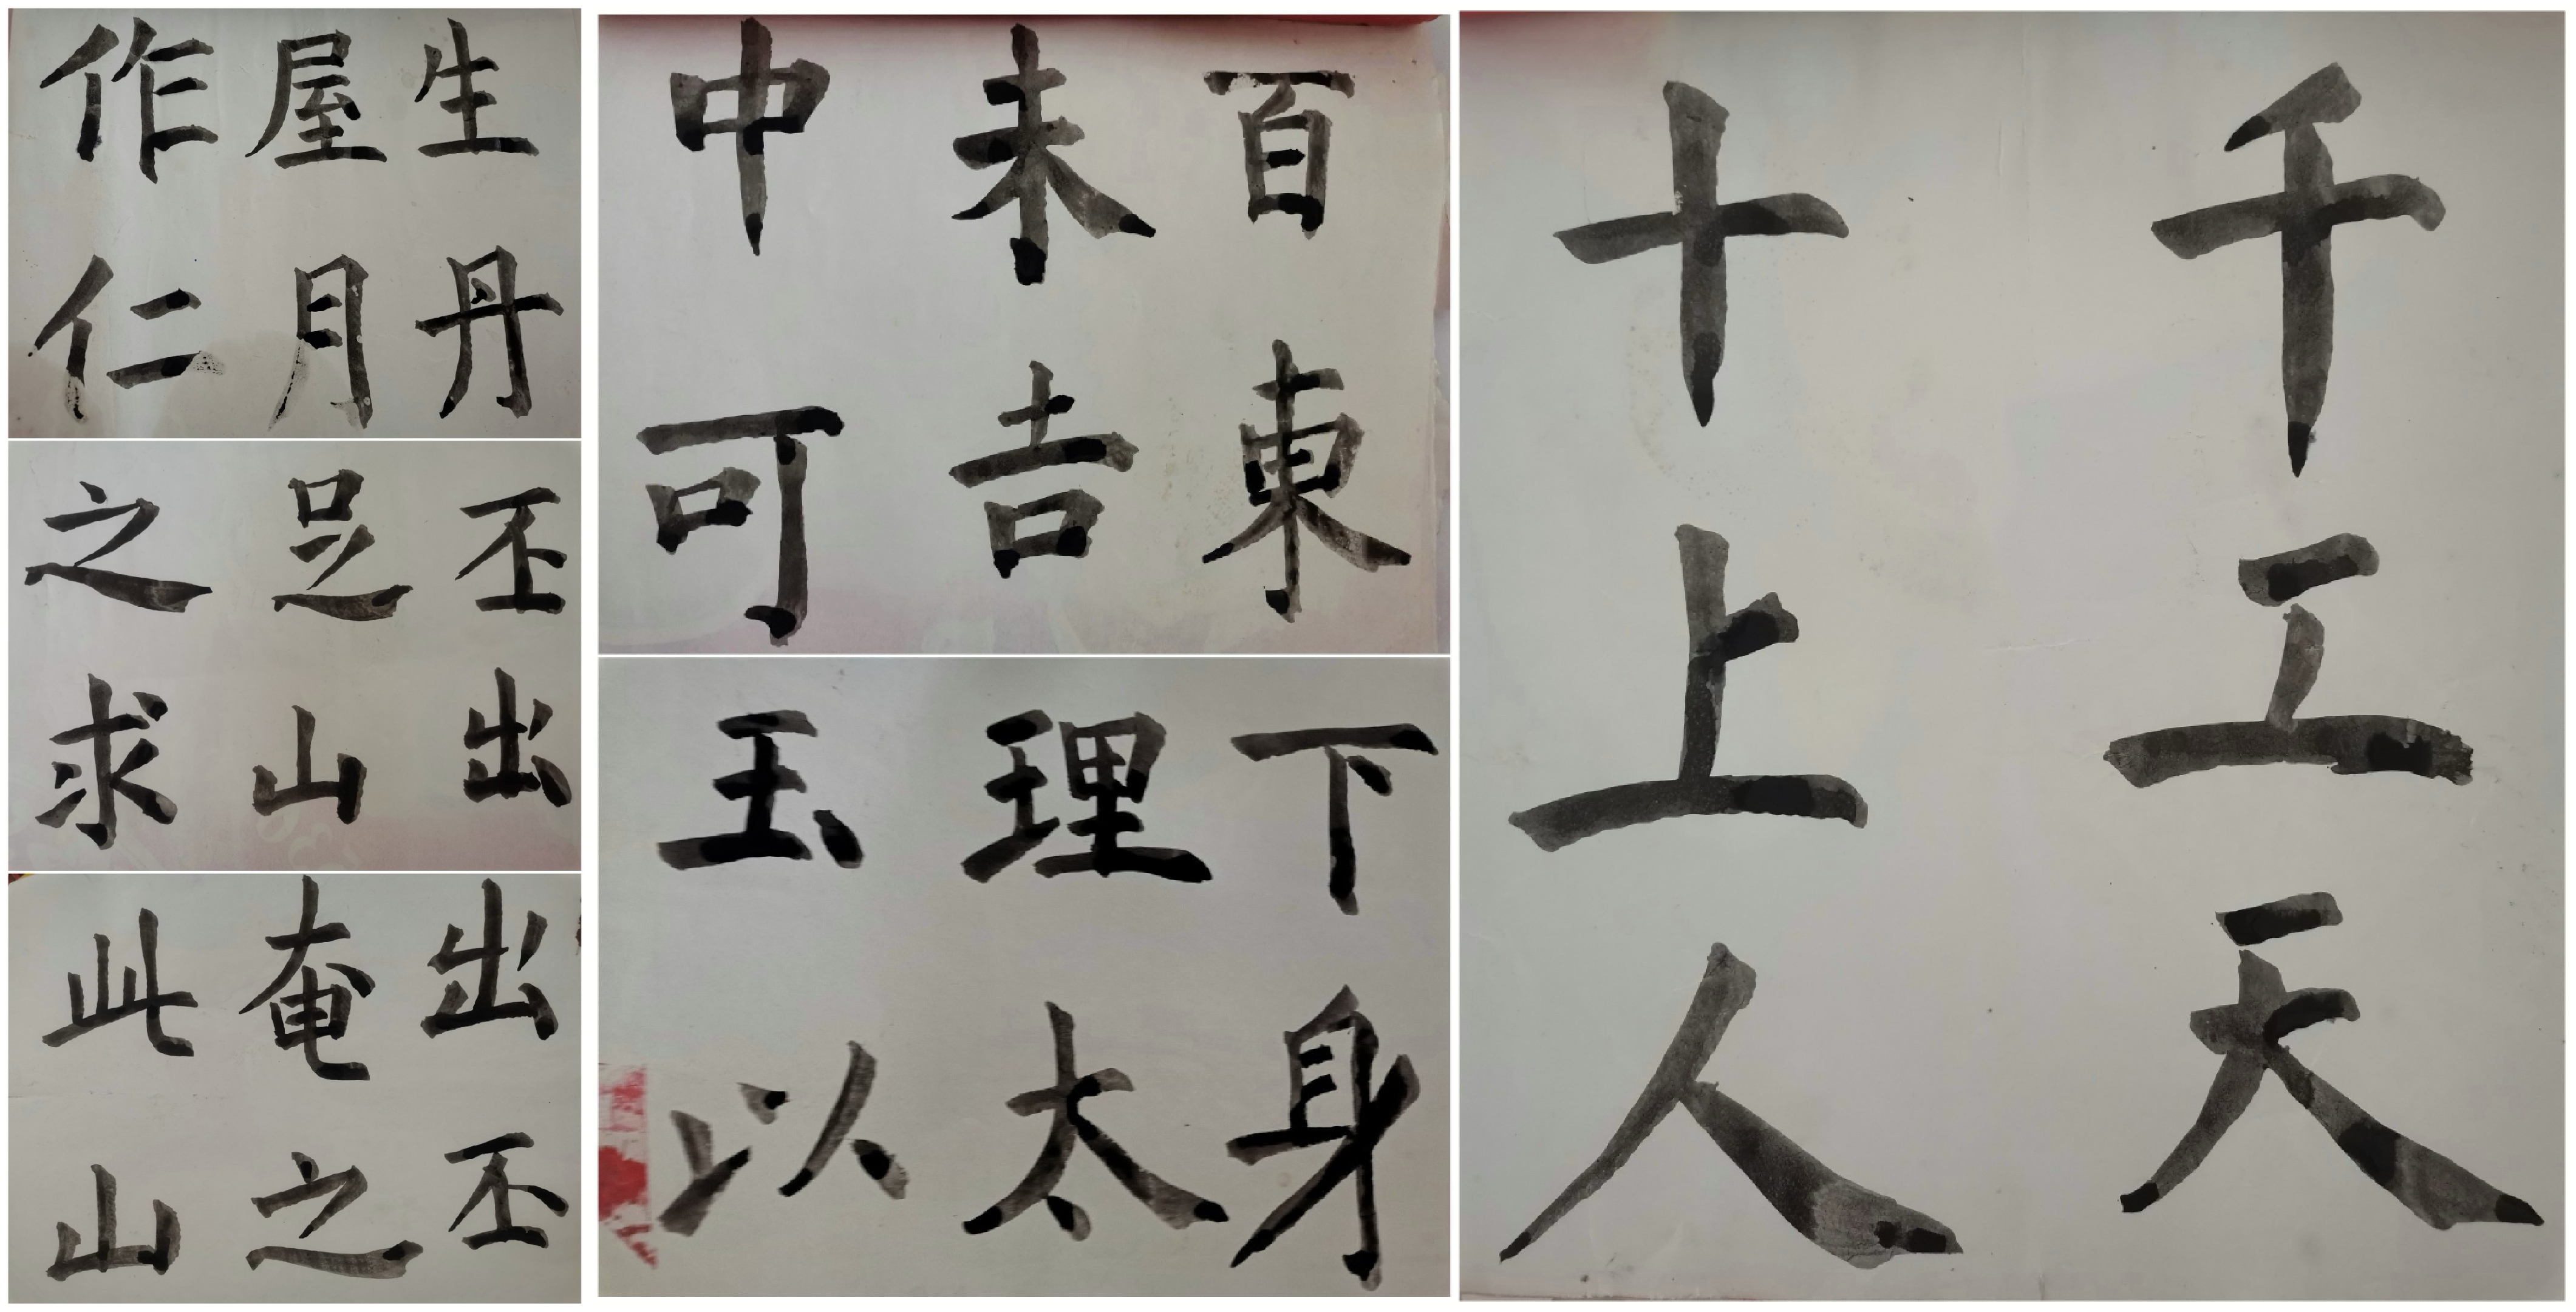 作屋生
仁月丹
之足丕
求山出
此奄出
山之丕
中未百
可吉東
玉理下
以太身
十千
上工
人天